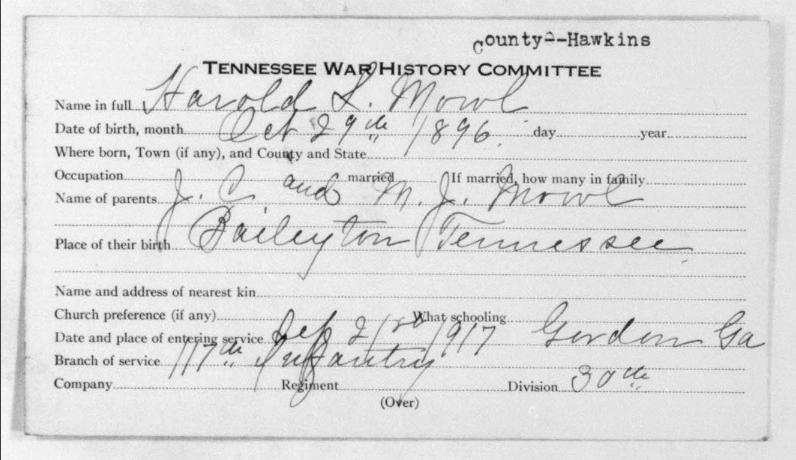 County--Hawkins
TENNESSEE WAR HISTORY COMMITTEE
Name in full Harold L. Mowl
Date of birth, month Oct 29th 1896. day year
Where born, Town (if any), and County and State
Occupation married If married, how many in family
Name of parents J. C. and M. J. Mowl
Place of their birth Baileyton Tennessee.
Name and address of nearest kin
Church preference (if any) What schooling
Date and place of entering service Sep 1917 Gordon Ga
Branch of service 117th Infantry
Company Regiment Division 30th
(Over)